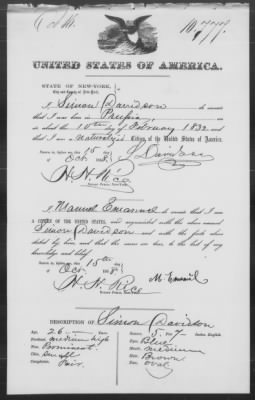 UNITED STATES OF AMERICA.
STATE OF NEW-YORK,
City and County of New-York.
I Simon Davidson do swear
that I was born in Prussia
on or about the 10th day of February 1832
and that I am a Naturalized Citizen of the United States of America.
Sworn to, before me, this 15
Oct 185
S Davidson
H. N. Rice
Notary Public, New-York.
I Manuel Emanuel do swear that I am
a CITIZEN OF THE UNITED STATES, and acquainted with the above named
Simon Davidson and with the facts above
stated by him, and that the same are true, to the best of my
knowledge and belief.
Sworn to, before me, this 15th day
Oct 185
M Emanuel
H. N. Rice
Notary Public,
DESCRIPTION OF Simon Davidson
Age, 26 Stature, 5 7 Inches, English
Forehead, medium high Eyes, Blue
Nose, Prominent Mouth, medium
Chin, Small Hair, Brown
Complexion, Fair Face, oval